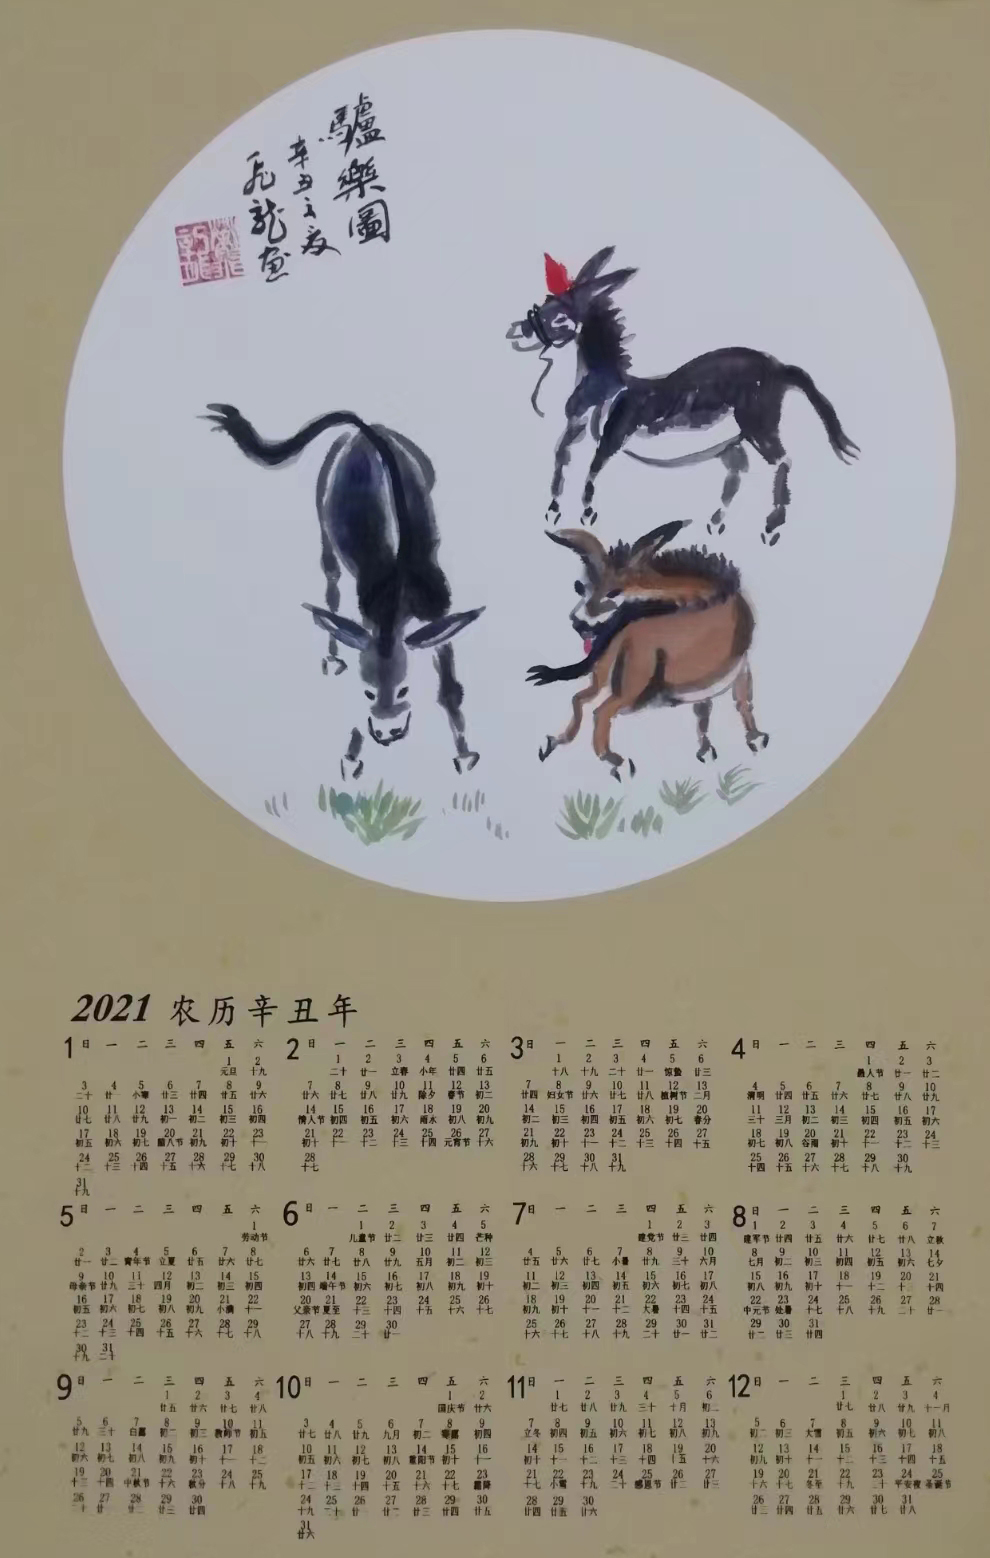 驢樂圖
辛丑之夏
飛龍画
2021 农历辛丑年
1
日 一 二 三 四 五 六
1 2
元旦 十九
3 4 5 6 7 8 9
二十 廿一 小寒 廿三 廿四 廿五 廿六
10 11 12 13 14 15 16
廿七 廿八 廿九 初一 初二 初三 初四
17 18 19 20 21 22 23
初五 初六 初七 腊八节 初九 初十 十一
24 25 26 27 28 29 30
十二 十三 十四 十五 十六 十七 十八
31
十九
2
日 一 二 三 四 五 六
1 2 3 4 5 6
二十 廿一 立春 小年 廿四 廿五
7 8 9 10 11 12 13
廿六 廿七 廿八 廿九 除夕 春节 初二
14 15 16 17 18 19 20
情人节 初四 初五 初六 雨水 初八 初九
21 22 23 24 25 26 27
初十 十一 十二 十三 十四 元宵节 十六
28
十七
3
日 一 二 三 四 五 六
1 2 3 4 5 6
十八 十九 二十 廿一 惊蛰 廿三
7 8 9 10 11 12 13
廿四 妇女节 廿六 廿七 廿八 植树节 二月
14 15 16 17 18 19 20
初二 初三 初四 初五 初六 初七 春分
21 22 23 24 25 26 27
初九 初十 十一 十二 十三 十四 十五
28 29 30 31
十六 十七 十八 十九
4
日 一 二 三 四 五 六
1 2 3
愚人节 廿一 廿二
4 5 6 7 8 9 10
清明 廿四 廿五 廿六 廿七 廿八 廿九
11 12 13 14 15 16 17
三十 三月 初二 初三 初四 初五 初六
18 19 20 21 22 23 24
初七 初八 谷雨 初十 十一 十二 十三
25 26 27 28 29 30
十四 十五 十六 十七 十八 十九
5
日 一 二 三 四 五 六
1
劳动节
2 3 4 5 6 7 8
廿一 廿二 青年节 立夏 廿五 廿六 廿七
9 10 11 12 13 14 15
母亲节 廿九 三十 四月 初二 初三 初四
16 17 18 19 20 21 22
初五 初六 初七 初八 初九 小满 十一
23 24 25 26 27 28 29
十二 十三 十四 十五 十六 十七 十八
30 31
十九 二十
6
日 一 二 三 四 五 六
1 2 3 4 5
儿童节 廿二 廿三 廿四 芒种
6 7 8 9 10 11 12
廿六 廿七 廿八 廿九 五月 初二 初三
13 14 15 16 17 18 19
初四 端午节 初六 初七 初八 初九 初十
20 21 22 23 24 25 26
父亲节 夏至 十三 十四 十五 十六 十七
27 28 29 30
十八 十九 二十 廿一
7
日 一 二 三 四 五 六
1 2 3
建党节 廿三 廿四
4 5 6 7 8 9 10
廿五 廿六 廿七 小暑 廿九 三十 六月
11 12 13 14 15 16 17
初二 初三 初四 初五 初六 初七 初八
18 19 20 21 22 23 24
初九 初十 十一 十二 大暑 十四 十五
25 26 27 28 29 30 31
十六 十七 十八 十九 二十 廿一 廿二
8
日 一 二 三 四 五 六
1 2 3 4 5 6 7
建军节 廿四 廿五 廿六 廿七 廿八 立秋
8 9 10 11 12 13 14
七月 初二 初三 初四 初五 初六 七夕
15 16 17 18 19 20 21
初八 初九 初十 十一 十二 十三 十四
22 23 24 25 26 27 28
中元节 处暑 十七 十八 十九 二十 廿一
29 30 31
廿二 廿三 廿四
9
日 一 二 三 四 五 六
1 2 3 4
廿五 廿六 廿七 廿八
5 6 7 8 9 10 11
廿九 三十 白露 初二 初三 教师节 初五
12 13 14 15 16 17 18
初六 初七 初八 初九 初十 十一 十二
19 20 21 22 23 24 25
十三 十四 中秋节 十六 秋分 十八 十九
26 27 28 29 30
二十 廿一 廿二 廿三 廿四
10
日 一 二 三 四 五 六
1 2
国庆节 廿六
3 4 5 6 7 8 9
廿七 廿八 廿九 九月 初二 寒露 初四
10 11 12 13 14 15 16
初五 初六 初七 初八 重阳节 初十 十一
17 18 19 20 21 22 23
十二 十三 十四 十五 十六 十七 霜降
24 25 26 27 28 29 30
十九 二十 廿一 廿二 廿三 廿四 廿五
31
廿六
11
日 一 二 三 四 五 六
1 2 3 4 5 6
廿七 廿八 廿九 三十 十月 初二
7 8 9 10 11 12 13
立冬 初四 初五 初六 初七 初八 初九
14 15 16 17 18 19 20
初十 十一 十二 十三 十四 十五 十六
21 22 23 24 25 26 27
十七 小雪 十九 二十 感恩节 廿二 廿三
28 29 30
廿四 廿五 廿六
12
日 一 二 三 四 五 六
1 2 3 4
廿七 廿八 廿九 十一月
5 6 7 8 9 10 11
初二 初三 大雪 初五 初六 初七 初八
12 13 14 15 16 17 18
初九 初十 十一 十二 十三 十四 十五
19 20 21 22 23 24 25
十六 十七 冬至 十九 二十 平安夜 圣诞节
26 27 28 29 30 31
廿三 廿四 廿五 廿六 廿七 廿八